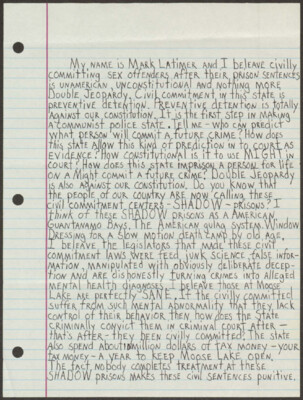 My name is Mark Latimer and I beleave civilly
committing sex offenders after their prison sentences
is unamerican, unconstitutional and nothing more
Double Jeopardy. Civil commitment in this state is
preventive detention. Preventive detention is totally
against our constitution. It is the first step in making
a communist police state. Tell me - who can predict
what person will commit a future crime? How does
this state allow this kind of prediction in to court as
evidence? How constitutional is it to use MIGHT in
court? How does this state imprison a person for life
on a Might commit a future crime? Double Jeopardy
is also against our constitution. Do you know that
the people of our country are now calling these
civil commitment centers - SHADOW - prisons? I
think of these SHADOW prisons as a American
Guantanamo Bays. The American gulag system. Window
dressing for a slow motion death camp by old age.
I beleave the legislators that made these civil
commitment laws were feed junk science, false infor-
mation, manipulated with obviously celibrate decep-
tion and are dishonestly turning crimes into alleged
mental health diagnoses. I beleave those at Moose
Lake are perfectly SANE. If the civilly committed
suffer from such mental abnormality that they lack
control of their behavior then how does the State
criminally convict them in criminal court after -
thats after - they been civilly committed? The state
also spend about million dollars of tax money - your
tax money - a year to keep Moose Lake open.
The fact nobody completes treatment at these
SHADOW prisons makes these civil sentences punitive.